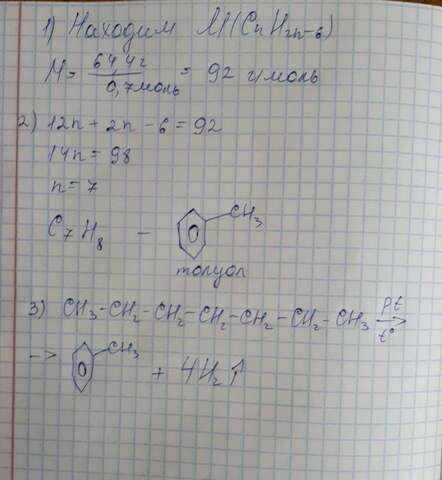 1) Находим M(CnH2n-6)
M = 64,4г / 0,7моль = 92 г/моль
2) 12n + 2n - 6 = 92
14n = 98
n = 7
C7H8 - CH3
толуол
3) CH3-CH2-CH2-CH2-CH2-CH2-CH3 pt t° →
-> CH3 + 4H2↑